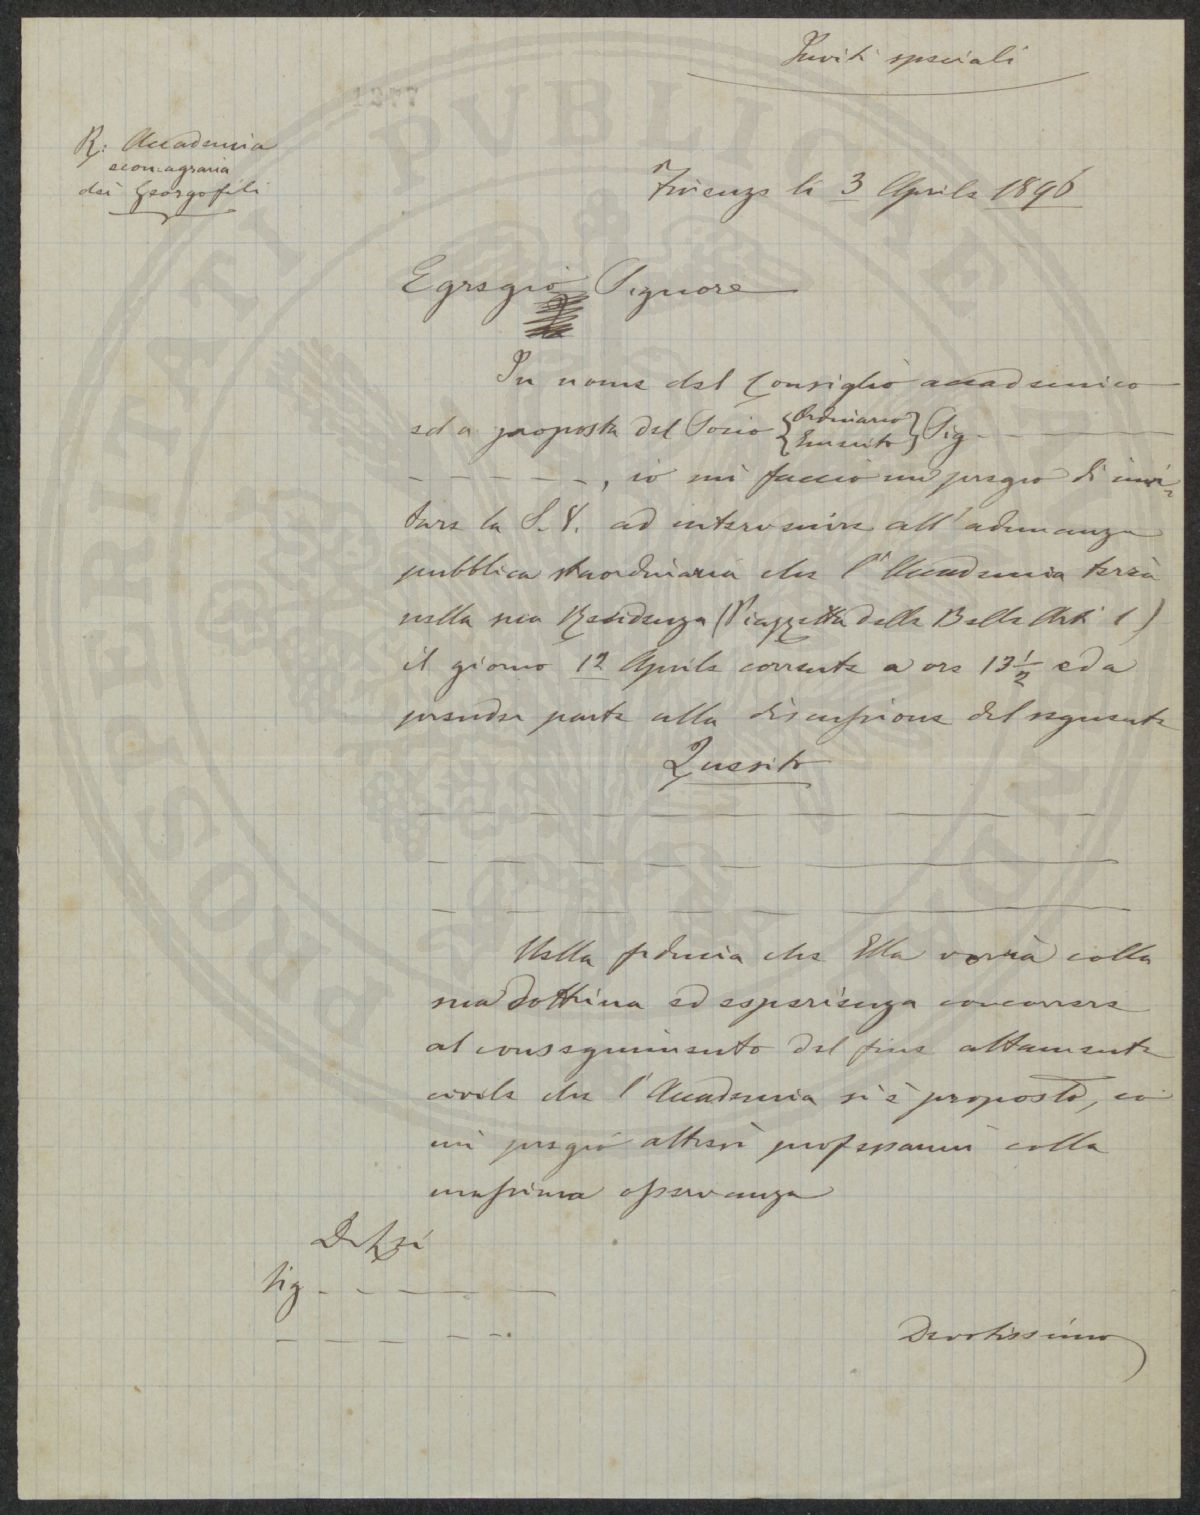 Inviti speciali
R. Accademia
econ-agraria
dei Georgofili
Firenze lì 3 Aprile 1896
Egregio Signore
In nome del Consiglio accademico
ed a proposta del Socio {Ordinario Emerito} Sig – – – –
– – – – –, io mi faccio un pregio di invi-
tare la S. V. ad intervenire all'adunanza
pubblica straordinaria che l'Accademia terrà
nella sua Residenza (Piazzetta delle Belle Arti 1)
il giorno 12 Aprile corrente a ore 13 1/2 ed a
prender parte alla discussione del seguente
Quesito
Nella fiducia che Ella vorrà colla
sua dottrina ed esperienza concorrere
al conseguimento del fine altamente
civile che l'Accademia si è proposto, io
mi pregio altresì professarmi colla
massima osservanza
Sig – – – –
Devotissimo
PUBLICAE
PROSPERITATI